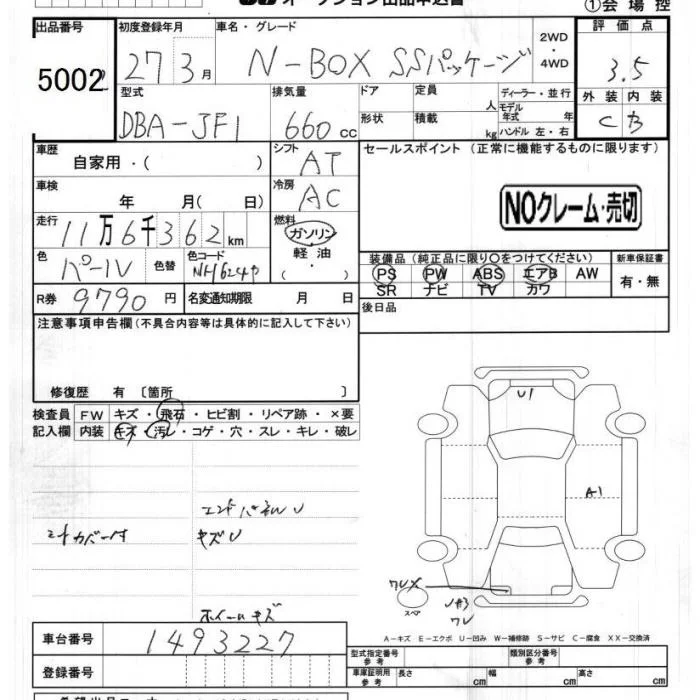 オークション出品申込書
①会場控
出品番号
5002
初度登録年月
27 3月
車名・グレード
N-BOX SSパッケージ
2WD・4WD
評価点
3.5
型式
DBA-JF1
排気量
660cc
ドア
形状
定員 人
積載 kg
ディーラー・並行
モデル年式 年
ハンドル 左・右
外装 内装
C B
車歴
自家用・( )
シフト
AT
セールスポイント (正常に機能するものに限ります)
車検
年 月( 日)
冷房
AC
NOクレーム・売切
走行
11万6千362km
燃料
ガソリン
軽油
( ・ )
色
パールV
色替
色コード
NH624P
装備品 (純正品に限り○をつけてください)
PS PW ABS エアB AW
SR ナビ TV カワ
新車保証書
有・無
R券
9790円
名変通知期限 月 日
後日品
注意事項申告欄 (不具合内容等は具体的に記入して下さい)
修復歴 有 〔箇所 〕
検査員記入欄
FW キズ・飛石・ヒビ割・リペア跡・×要
内装 キズ・汚レ・コゲ・穴・スレ・キレ・破レ
エンドパネルU
シートカバー付
キズU
ホイールキズ
U1
A1
ワレX
スペア
Uキ3
ワレ
A-キズ E-エクボ U-凹み W-補修跡 S-サビ C-腐食 XX-交換済
車台番号
1493227
登録番号
型式指定番号
参考
類別区分番号
参考
車庫証明用
参考
長さ cm
幅 cm
高さ cm